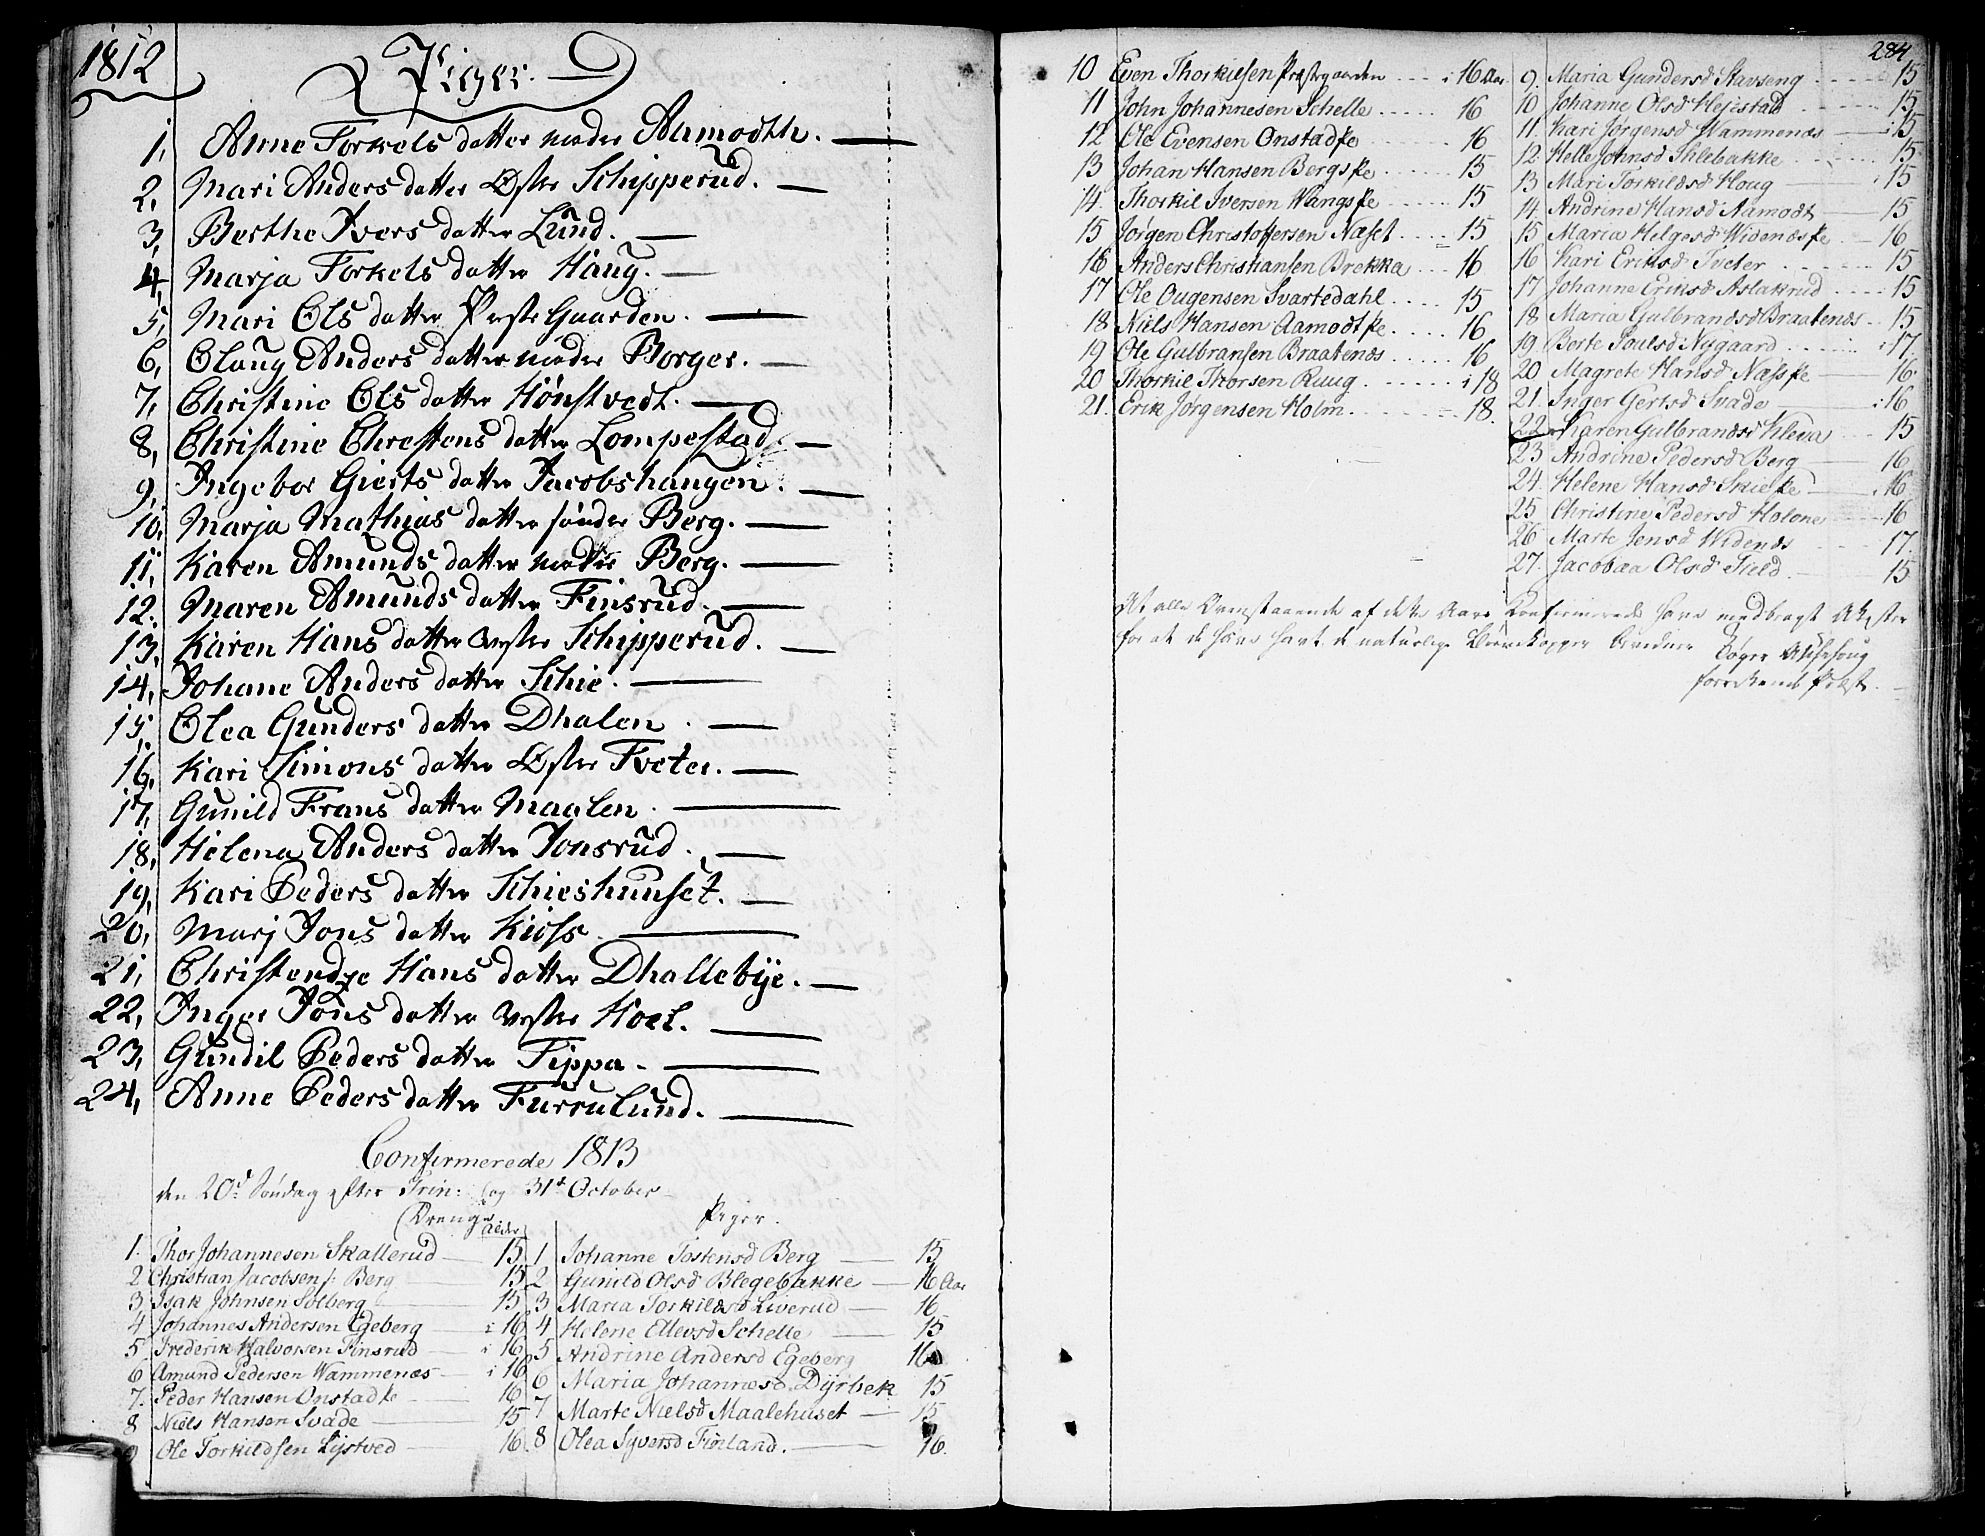 1812
Piger.
1, Anne Torkels datter nedre Aamodth.
2, Mari Anders datter Øster Schipperud.
3, Berthe Ivers datter Lund.
4, Marja Torkels datter Haug.
5, Mari Ols datter Præste Gaarden.
6, Olaug Anders datter nedre Borger.
7, Christine Ols datter Hønstvedt.
8, Christine Chrestens datter Lompestad
9, Ingebor Gierts datter Jacobshaugen.
10, Marja Mathias datter søndre Berg.
11, Karen Amunds datter nedre Berg.
12, Maren Amunds datter Finsrud.
13, Karen Hans datter Vester Schipperud.
14, Johane Anders datter Schie.
15, Olea Gunders datter Dhalen.
16, Kari Simons datter Øster Tveter.
17, Gunild Frans datter Maalen.
18, Helena Anders datter Jonsrud.
19, Kari Peders datter Schieshuuset.
20, Marj Jons datter Kioss.
21, Christendze Hans datter Dhallebÿe.
22, Inger Jons datter Vester Hoel.
23, Gundil Peders datter Tippa.
24, Anne Peders datter Furrulund.
Confirmerede 1813
den 20d Søndag efter Trin: og 31t October
Drenge Alder
1. Thor Johannesen Skallerud 15
2 Christian Jacobsen Berg 15
3 Isak Johnsen Solberg 15
4 Johannes Andersen Egeberg i 16
5 Frederik Halvorsen Finsrud i 16
6 Amund Pedersen Wammenæs i 16
7. Peder Hansen Onstadse 16
8 Niels Hansen Svade 15
9 Ole Torkildsen Lystved 16
Piger.
1 Johanne Tostensd Berg 15
2 Gunild Olsd Blegebakke 16 Aar
3 Maria Torkildsd Liverud 16
4 Helene Ellevsd Schelle 15
5 Andrine Andersd Egeberg 16
6 Maria Johannesd Dÿrbek 15
7 Marte Nielsd Maalehuset 15
8 Olea Syversd Finland. 16.
284
10 Even Thorkilsen Præstegaarden i 16 Aar
11 John Johannesen Schelle 16
12 Ole Evensen Onstadse 16
13 Johan Hansen Bergse 15
14. Thorkil Iversen Wangse 15
15 Jørgen Christoffersen Næset 15
16 Anders Christiansen Brekka 16
17 Ole Ougensen Svartedahl 15
18 Niels Hansen Aamodtse 16
19 Ole Gulbransen Braatenæs 16
20 Thorkil Thorsen Ruug i 18
21. Erik Jørgensen Holm 18.
9. Maria Gundersd Stavseng 15
10 Johanne Olsd Hejestad 15
11. Kari Jørgensd Wammenæs i 15
12 Helle Johnsd Shlebakke 15
13 Mari Torkildsd Houg 15
14 Andrine Hansd Aamodt 15
15 Maria Helgesd Widenæsse 16
16 Kari Eriksd Tveter 15
17 Johanne Eriksd Aslakrud 15
18 Maria Gulbrandsd Braatenæs 15
19 Borte Poulsd Nygaard i 17
20 Magrete Hansd Næsse 16
21. Inger Gertsd Svade i 16
22 Karen Gulbrandsd Kleva 15
23 Andrine Pedersd Berg 16
24. Helene Hansd Skiese i 16
25 Christine Pedersd Holene 16
26 Marte Jensd Widenæs 17.
27. Jacobaa Olsd Field 15
At alle Ovenstaaende af dette Aars Konfirmerede have medbragt Attester
for at de have havt de naturlige Børnekopper bevidner